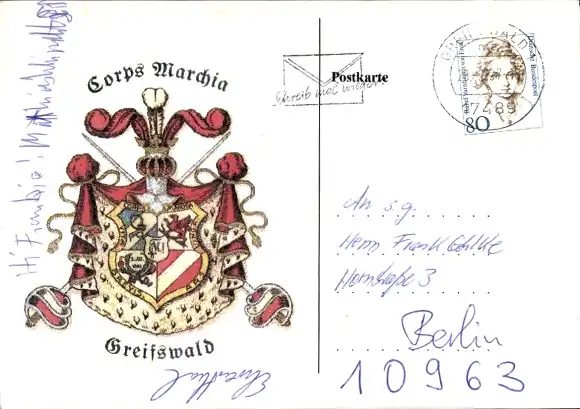 Corps Marchia
Greifswald
Postkarte
Schreib mal wieder!
GREIFSWALD
17489
Deutsche Bundespost
80
Hi Frankie!
An s.g.
Herrn Frank
Hornstraße 3
Berlin
10963